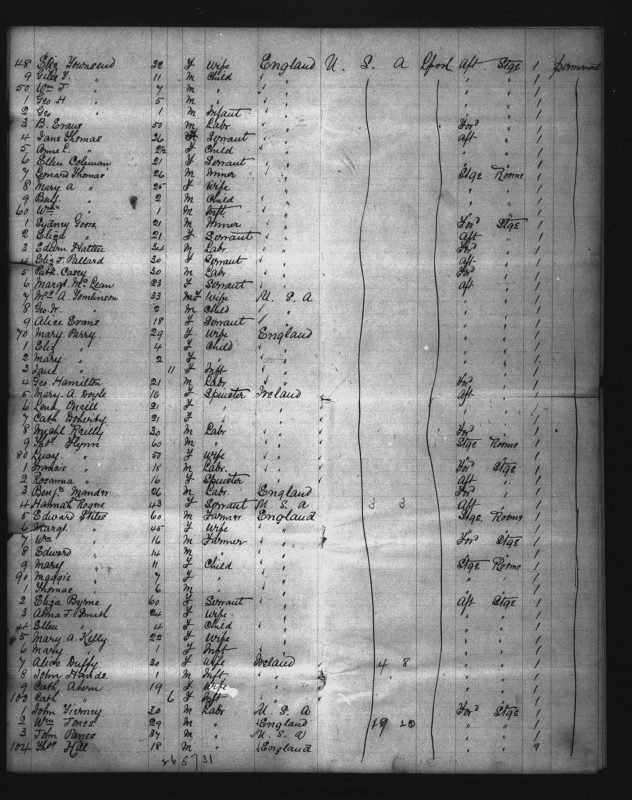 48 Eliz Townsend 32 F Wife England U. S. A Lpool Aft Stge 1 permanent
9 " 11 M Child " " "
50 Wm J " 7 M " " "
1 Geo H " 5 M " " "
2 Geo " 1 M Infant " "
3 B. Evans 50 M Labr " Ford
4 Jane Thomas 26 Servant " Aft
5 Anne E. " F Child " "
6 Ellen Coleman 21 F Servant " "
7 Leonard Thomas 26 M Miner " Stge Rooms
8 Mary A " 25 F Wife " "
9 Benj. " 2 M Child " "
60 Wm " 1 M Inft " "
1 Sydney 21 M Miner " Ford Stge
2 Elizth " 21 F Servant " Aft
3 Edwin Hatten 24 M Labr " Ford
4 Eliz J. Pallard 30 F Servant " Aft
5 Patk Casey 30 M Labr " Ford
6 Margt. McLean 23 F Servant " Aft
7 Mrs A. Tomlinson 33 F Wife U. S. A
8 Geo W. " 2 M Child " "
9 Alice Evans 18 F Servant " "
70 Mary Parry 29 F Wife England
1 Eliz " 4 F Child " "
2 Mary " 2 F " "
3 Jane " 11 F Inft " "
4 Geo Hamilton 21 M Labr " Ford
5 Mary A. Doyle 16 F Spinster Ireland Aft
6 Oneill 21 F " " "
7 Cath Doherty 21 F " " "
8 Michl Reilly 30 M Labr " Ford
9 Thos Flynn 60 M " " Stge Rooms
80 Lucy " 50 F Wife " "
1 Francis " 18 M Labr. " Ford Stge
2 Rosanna " 16 F Spinster " Aft
3 Benjn Mander 26 M Labr England Ford
4 Hannah Rogers 43 F Servant U. S. A 3 3 Aft
5 Edward Stiles 60 M Farmer England Stge Rooms
6 Margt. " 45 F Wife " "
7 Wm " 16 M Farmer " Ford Stge
8 Edward " 14 M " " "
9 Mary " 11 F Child " Stge Rooms
90 Maggie " 7 F " " "
1 Thomas " 6 M " " "
2 Eliza Byrne 60 F Servant " Aft Stge
3 J. Smith 24 F Wife " "
4 Ellen " 4 F Child " "
5 Mary A. Kelly 22 F Wife " "
6 Mary " 1 F Inft " "
7 Alice Duffy 30 F Wife Ireland 4 8
8 John Hands 1 M Inft " "
9 Cath Ahern 19 F Wife " "
100 Cath " 6 F Inft " "
1 John Tierney 30 M Labr U. S. A Ford Stge
2 Wm Jones 29 M " England 19 20
3 John 37 M " U. S. A
104 Thos Hill 18 M " England